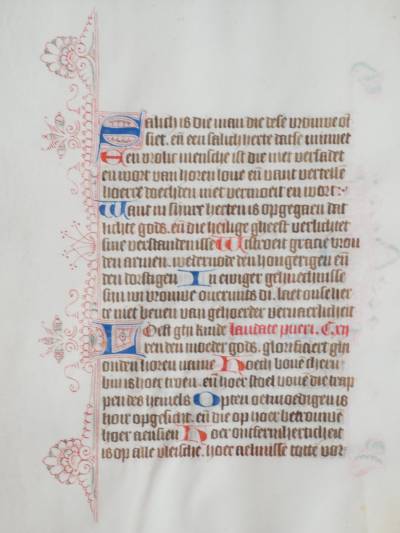 Salich is die man die dese vrouwe oī
siet. eñ een salich herte datse mint
Een vrolic mensche ist die niet versadet
en wort van horen love eñ vant vertelle
hoerre doechten niet vermoeit en wort:
Want in sinre herten is opgegaen dat
licht gods. eñ die heilige gheest verlichtet
sine verstandenisse Wtstort gratie vrou
den armen. wedervoede den hongerigen eñ
den dorstigen In ewiger gehuechnisse
si mi vrouwe overmits di. laet ons herte
niet beven van gehoerder vervaerlicheit
Loeft ghi kinder laudate pueri. Cry
eren den moeder gods. glorificiert ghi
ouden horen name Hoech bove cheru
bin is hoer troen. eñ hoer stoel bove die trap
pen des hemels Opten oetmoedigen is
hoir opgesicht. eñ die op hoer betrouwē
hoer aensien Hoer ontfermherticheit
is op alle vleische. hoer aelmisse totte voer